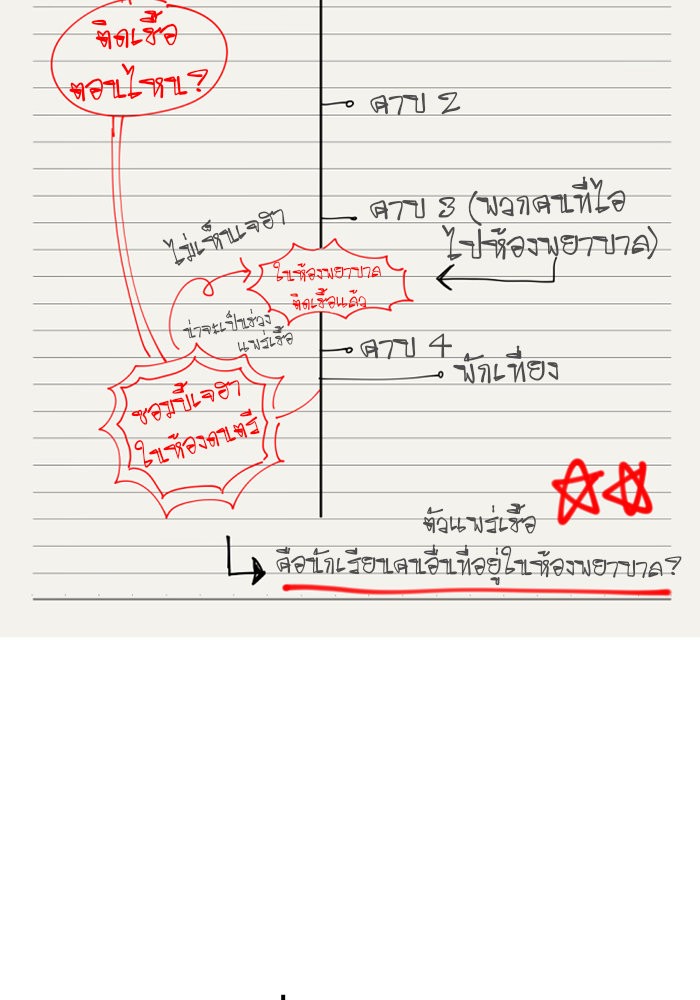 ติดเชื้อ
ตอนไหน?
คาบ 2
คาบ 3 (พวกคนที่ไอ
ไปห้องพยาบาล)
ไม่เห็นเจฮา
ในห้องพยาบาล
ติดเชื้อแล้ว
น่าจะเป็นช่วง
แพร่เชื้อ
คาบ 4
พักเที่ยง
ซอมบี้เจฮา
ในห้องดนตรี
ตัวแพร่เชื้อ
คือนักเรียนคนอื่นที่อยู่ในห้องพยาบาล?